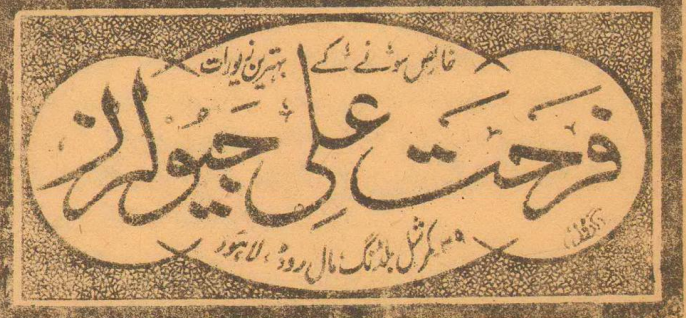 خالص سونے کے بہترین زیورات
فرحت علی جیولرز
۳۹ کمرشل بلڈنگ مال روڈ، لاہور